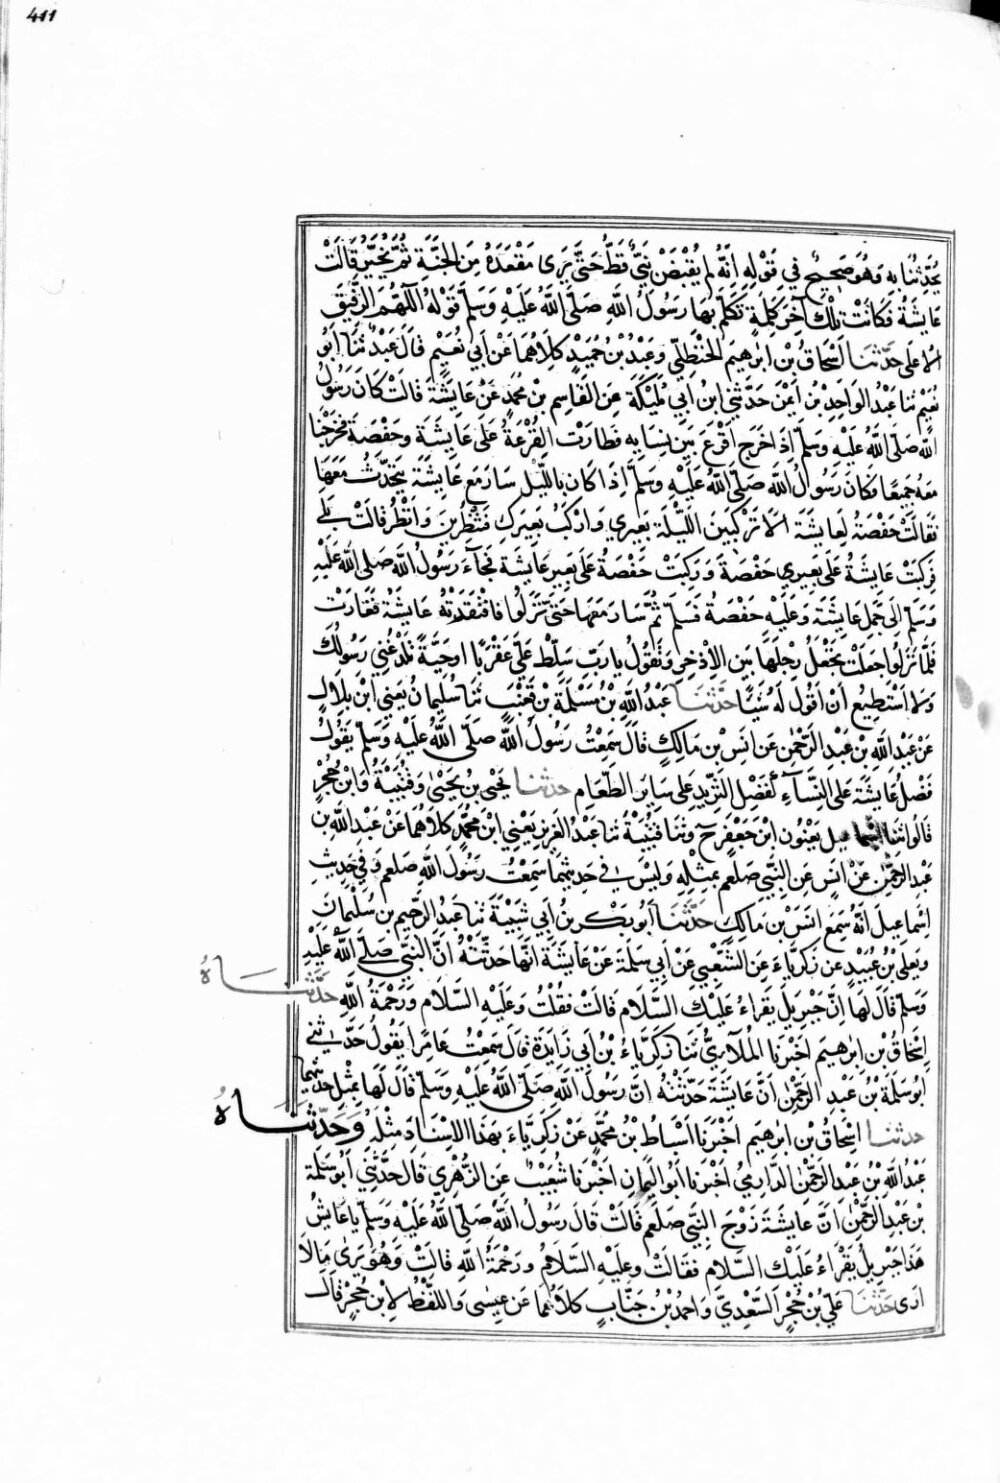 411
يُحَدِّثُنَا بِهِ وَهُوَ صَحِيحٌ فِي قَوْلِهِ اِنَّهُ لَمْ يُقْبَضْ نَبِيٌّ قَطُّ حَتَّى يَرَى مَقْعَدَهُ مِنَ الْجَنَّةِ ثُمَّ يُخَيَّرُ قَالَتْ
عَايِشَةُ فَكَانَتْ تِلْكَ آخِرَ كَلِمَةٍ تَكَلَّمَ بِهَا رَسُولُ اللَّهِ صَلَّى اللَّهُ عَلَيْهِ وَسَلَّمَ قَوْلَهُ اللَّهُمَّ الرَّفِيقَ
الاَعلَى حَدَّثنَا اِسْحَاقُ بْن ابرٰهِيمَ الْحَنْظَلِيّ وَعَبْدُ بْن حُمَيْدٍ كِلَاهُمَا عَنْ اَبِي نُعَيْمٍ قَالَ عَبْدٌ ثنَا اَبُو
نُعَيْمٍ ثنَا عَبْدُ الوَاحِدِ بْنُ اَيْمَنَ حَدَّثَنِي ابنُ اَبِي مُلَيْكَةَ عَنِ القَاسِمِ بْنِ مُحَمَّدٍ عَنْ عَايِشَةَ قَالَتْ كَانَ رَسُولُ
اللَّهِ صَلَّى اللَّهُ عَلَيْهِ وَسَلَّمَ اِذَ اخَرَجَ اَقْرَعَ بَيْنَ نِسَايِهِ فَطَارَتْ القُرْعَةُ عَلَى عَايِشَةَ وَحَفْصَةَ فَخَرَجْنَا
مَعَهُ جَمِيعًا فَكَانَ رَسُولُ اللَّهِ صَلَّى اللَّهُ عَلَيْهِ وَسَلَّمَ اِذَا كَانَ بِاللَّيْلِ سَارَ مَعَ عَايِشَةَ يَتَحَدَّثُ مَعَهَا
فَقَالَتْ حَفْصَةُ لِعَايِشَةَ اَلاَ تَرْكَبِينَ اللَّيْلَةَ بَعِيرِي وَارْكَبُ بَعِيرَكِ فَتَنْظُرِينَ وَانْظُرُ قَالَتْ بَلَى
فَرَكِبَتْ عَايِشَةُ عَلَى بَعِيرِي حَفْصَةَ وَرَكِبَتْ حَفْصَةُ عَلَى بَعِيرِ عَايِشَةَ فَجَآءَ رَسُولُ اللَّهِ صَلَى اللَّه عَلَيْهِ
وَسَلَّمَ اِلَى جَمَلِ عَايِشَةَ وَعَلَيْهِ حَفْصَةُ فَسَلَّمَ ثُمَّ سَارَ مَعَهَا حَتَى نَزَلُوا فَافْتَقَدَتْهُ عَايِشَةُ فَغَارَتْ
فَلَمَّا نَزَلُوا جَعَلَتْ تَجْعَلُ رِجْلَهَا بَيْنَ الاِذْخِرِ وَتَقُولُ يَارَبِّ سَلِّطْ عَلَيَّ عَقْرَبًا اوْ حَيَّةً تَلْدَغُنِي رَسُولُكَ
وَلَا اَسْتَطِيعُ اَنْ اَقُولَ لَهُ شَيْئًا حَدَّثَنَا عَبْدُ اللَّهِ بْنُ مَسْلَمَةَ بْن قَعْنَبٍ ثنَا سُلَيمَانُ يَعْنِي ابْنَ بِلَالٍ
عَنْ عَبْدِ اللَّهِ بْنِ عَبْدِ الرَّحْمٰنِ عَن اَنَسِ بْن مَالِكٍ قَالَ سَمِعْتُ رَسُولَ اللَّهِ صَلَّى اللَّهُ عَلَيْهِ وَسَلَّمَ يَقُولُ
فَضْلُ عَايِشَةَ عَلَى النِّسَآءِ كَفَضْلِ الثَّرِيدِ عَلَى سَايِرِ الطَّعَامِ حدثنا يَحْيَى بن يَحْيَى وَقُتَيْبَةُ وَابْنُ حُجْرٍ
قَالُوا ثنَا اِسْمَاعِيلُ يَعْنُونَ ابْنَ جَعْفَرٍ ح وثنَا قُتَيْبَةُ ثنَا عَبْدُ الْعَزِيزِ يَعْنِي ابْنَ مُحَمَّدٍ كِلَاهُمَا عَنْ عَبْدِ اللَّهِ بْنِ
عَبْدِ الرَّحْمٰنِ عَنْ اَنَسٍ عَنِ النَّبِيِّ صلعم بِمِثْلِهِ وَلَيْسَ فِي حَدِيثِهِمَا سَمِعْتُ رَسُولَ اللَّهِ صَلعَم وَفِي حَدِيثِ
اِسْمَاعِيلَ اَنَّهُ سَمِعَ اَنَسَ بْن مَالِكٍ حَدَّثَنَا اَبُو بَكْرِ بنُ اَبِي شَيْبَةَ ثنَا عَبدُ الرَّحِيمِ بن سُلَيْمَانَ
وَيَعلَى بْنُ عُبَيْدٍ عَن زكَرِيَّاءَ عَنِ الشَّعْبِيِّ عَنْ اَبِي سَلَمَةَ عَنْ عَايِشَةَ اَنَّهَا حَدَّثَتْهُ اَنَّ النَّبِيَّ صَلَّى اللَّهُ عَلَيْهِ
وَسَلَّمَ قَالَ لَهَا اِنَّ جِبْرِيلَ يَقْرَاءُ عَلَيْكِ السَّلَامَ قَالَتْ فَقُلْتُ وَعَلَيْهِ السَّلَامُ وَرَحْمَةُ اللَّهِ حَدَّثنَاهُ
اِسْحَاقُ بْن اِبرٰهِيمَ اَخْبَرنَا الْمُلَائِيُّ ثنَا زَكَرِيَّاءُ بْنُ اَبِي زَايِدَةَ قَالَ سَمِعْتُ عَامِرًا يَقُولُ حَدَّثَنِي
اَبُو سَلَمَةَ بْنُ عَبْدِ الرَّحْمٰنِ اَنَّ عَايِشَةَ حَدَّثَتْهُ اَنَّ رَسُولَ اللَّهِ صَلَّى اللَّهُ عَلَيْهِ وَسَلَّمَ قَالَ لَهَا بِمِثْلِ حَدِيثِهِمَا
حدثنا اِسْحَاقُ بن ابرٰهِيم اَخْبَرنَا اَسْبَاط بْنُ مُحَمَّدٍ عَنْ زَكَرِيَّاءَ بِهَذَا الاِسْنَادِ مِثْلَهُ وَحَدَّثنَاهُ
عَبْدُ اللَّهِ بْنُ عَبْدِ الرَّحْمٰنِ الدَّارِمِيُّ اَخْبَرنَا اَبُو الْيَمَانِ اَخْبَرنَا شُعَيْبٌ عَنِ الزُّهْرِي قَالَ حَدَّثَنِي اَبُو سَلَمَةَ
بْنُ عَبْدِ الرَّحْمٰنِ اَنَّ عَايِشَةَ زَوْجَ النَّبِيِّ صَلعَم قَالَتْ قَالَ رَسُولُ اللَّهِ صَلَّى اللَّهُ عَلَيْهِ وَسَلَّمَ يَا عَايِشُ
هَذَا جِبْرِيلُ يَقْرَاءُ عَلَيْكِ السَّلَامَ فَقَالَتْ وَعَلَيْهِ السَّلَامُ وَرَحْمَةُ اللَّهِ قَالَتْ وَهُوَ يَرَى مَالَا
اَرَى حَدَّثَنَا عَلِيُّ بْنُ حُجْرٍ السَّعْدِيُّ وَاَحمَدُ بْنُ جَنَابٍ كِلَاهُمَا عَن عِيسَى وَاللَّفْظُ لِابْنِ حُجْرٍ قَالَ